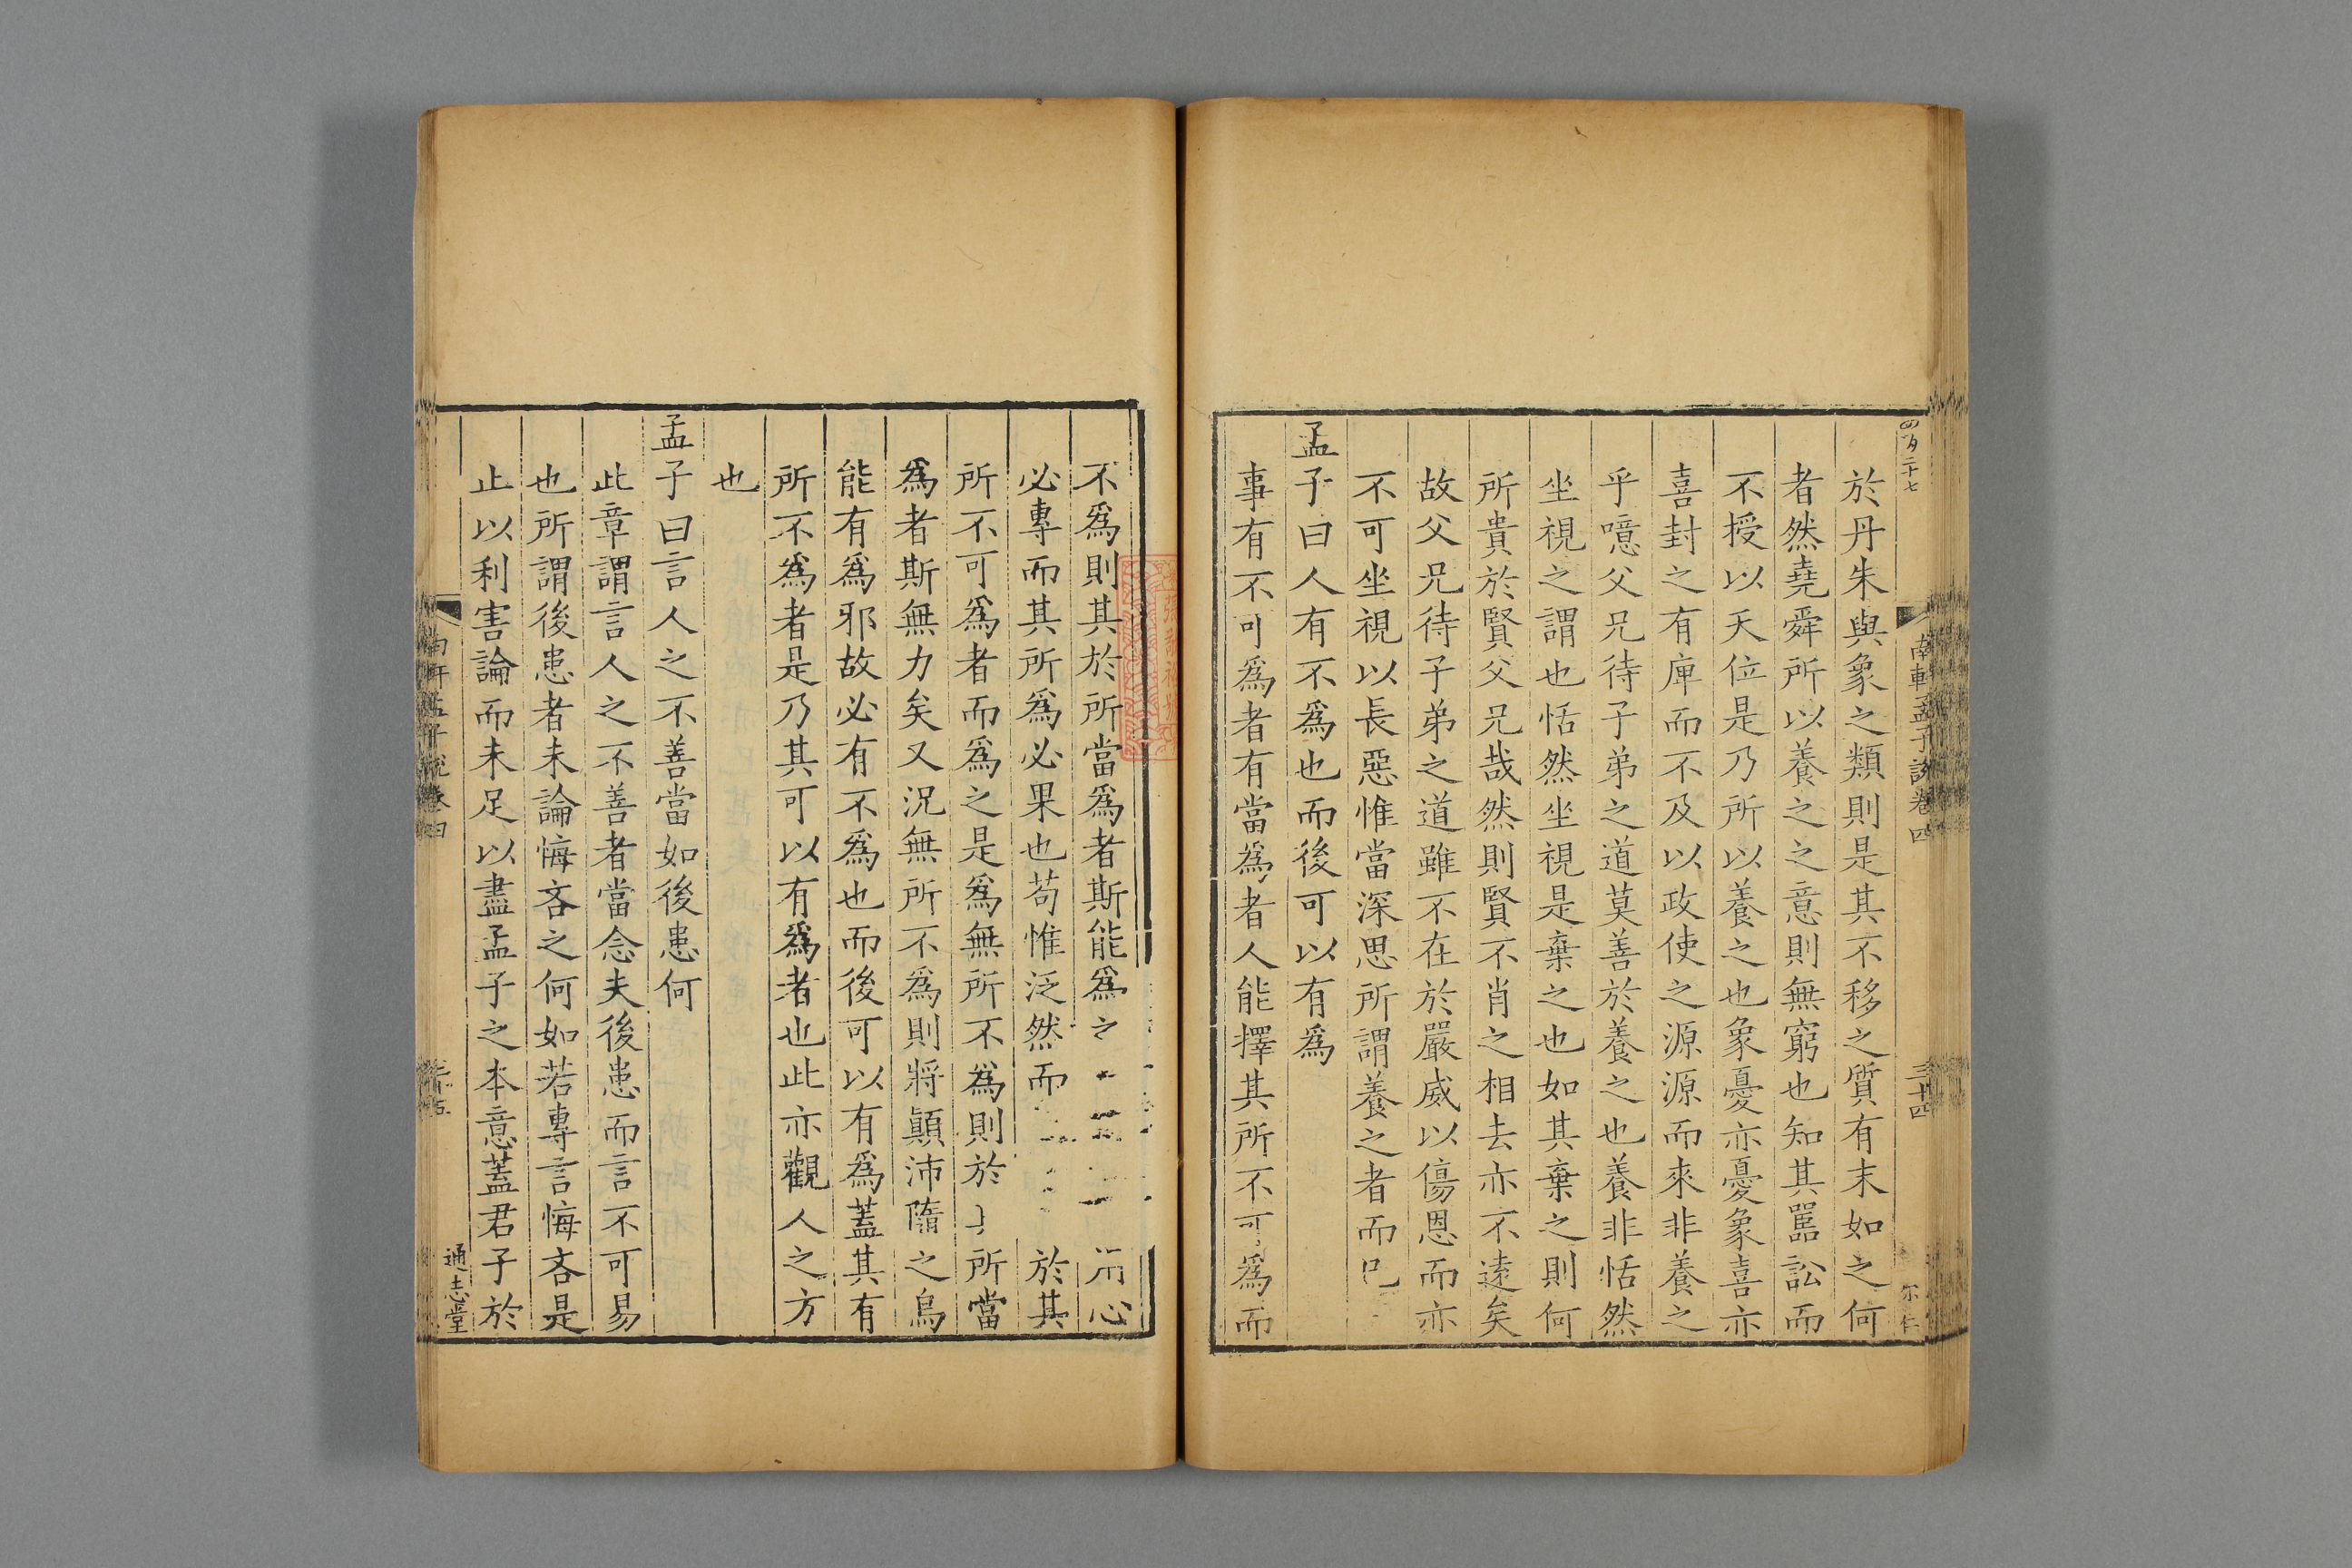 四百二十七
南軒孟子說卷四
三十四
於丹朱與象之類則是其不移之質有末如之何
者然堯舜所以養之之意則無窮也知其嚚訟而
不授以天位是乃所以養之也象憂亦憂象喜亦
喜封之有庳而不及以政使之源源而來非養之
乎噫父兄待子弟之道莫善於養之也養非恬然
坐視之謂也恬然坐視是棄之也如其棄之則何
所貴於賢父兄哉然則賢不肖之相去亦不遠矣
故父兄待子弟之道雖不在於嚴威以傷恩而亦
不可坐視以長惡惟當深思所謂養之者而已
孟子曰人有不爲也而後可以有爲
事有不可爲者有當爲者人能擇其所不可爲而
不爲則其於所當爲者斯能爲之心
必專而其所爲必果也苟惟泛然而於其
所不可爲者而爲之是爲無所不爲則於所當
爲者斯無力矣又況無所不爲則將顚沛隨之烏
能有爲邪故必有不爲也而後可以有爲蓋其有
所不爲者是乃其可以有爲者也此亦觀人之方
也
孟子曰言人之不善當如後患何
此章謂言人之不善者當念夫後患而言不可易
也所謂後患者未論悔吝之何如若專言悔吝是
止以利害論而未足以盡孟子之本意蓋君子於
通志堂